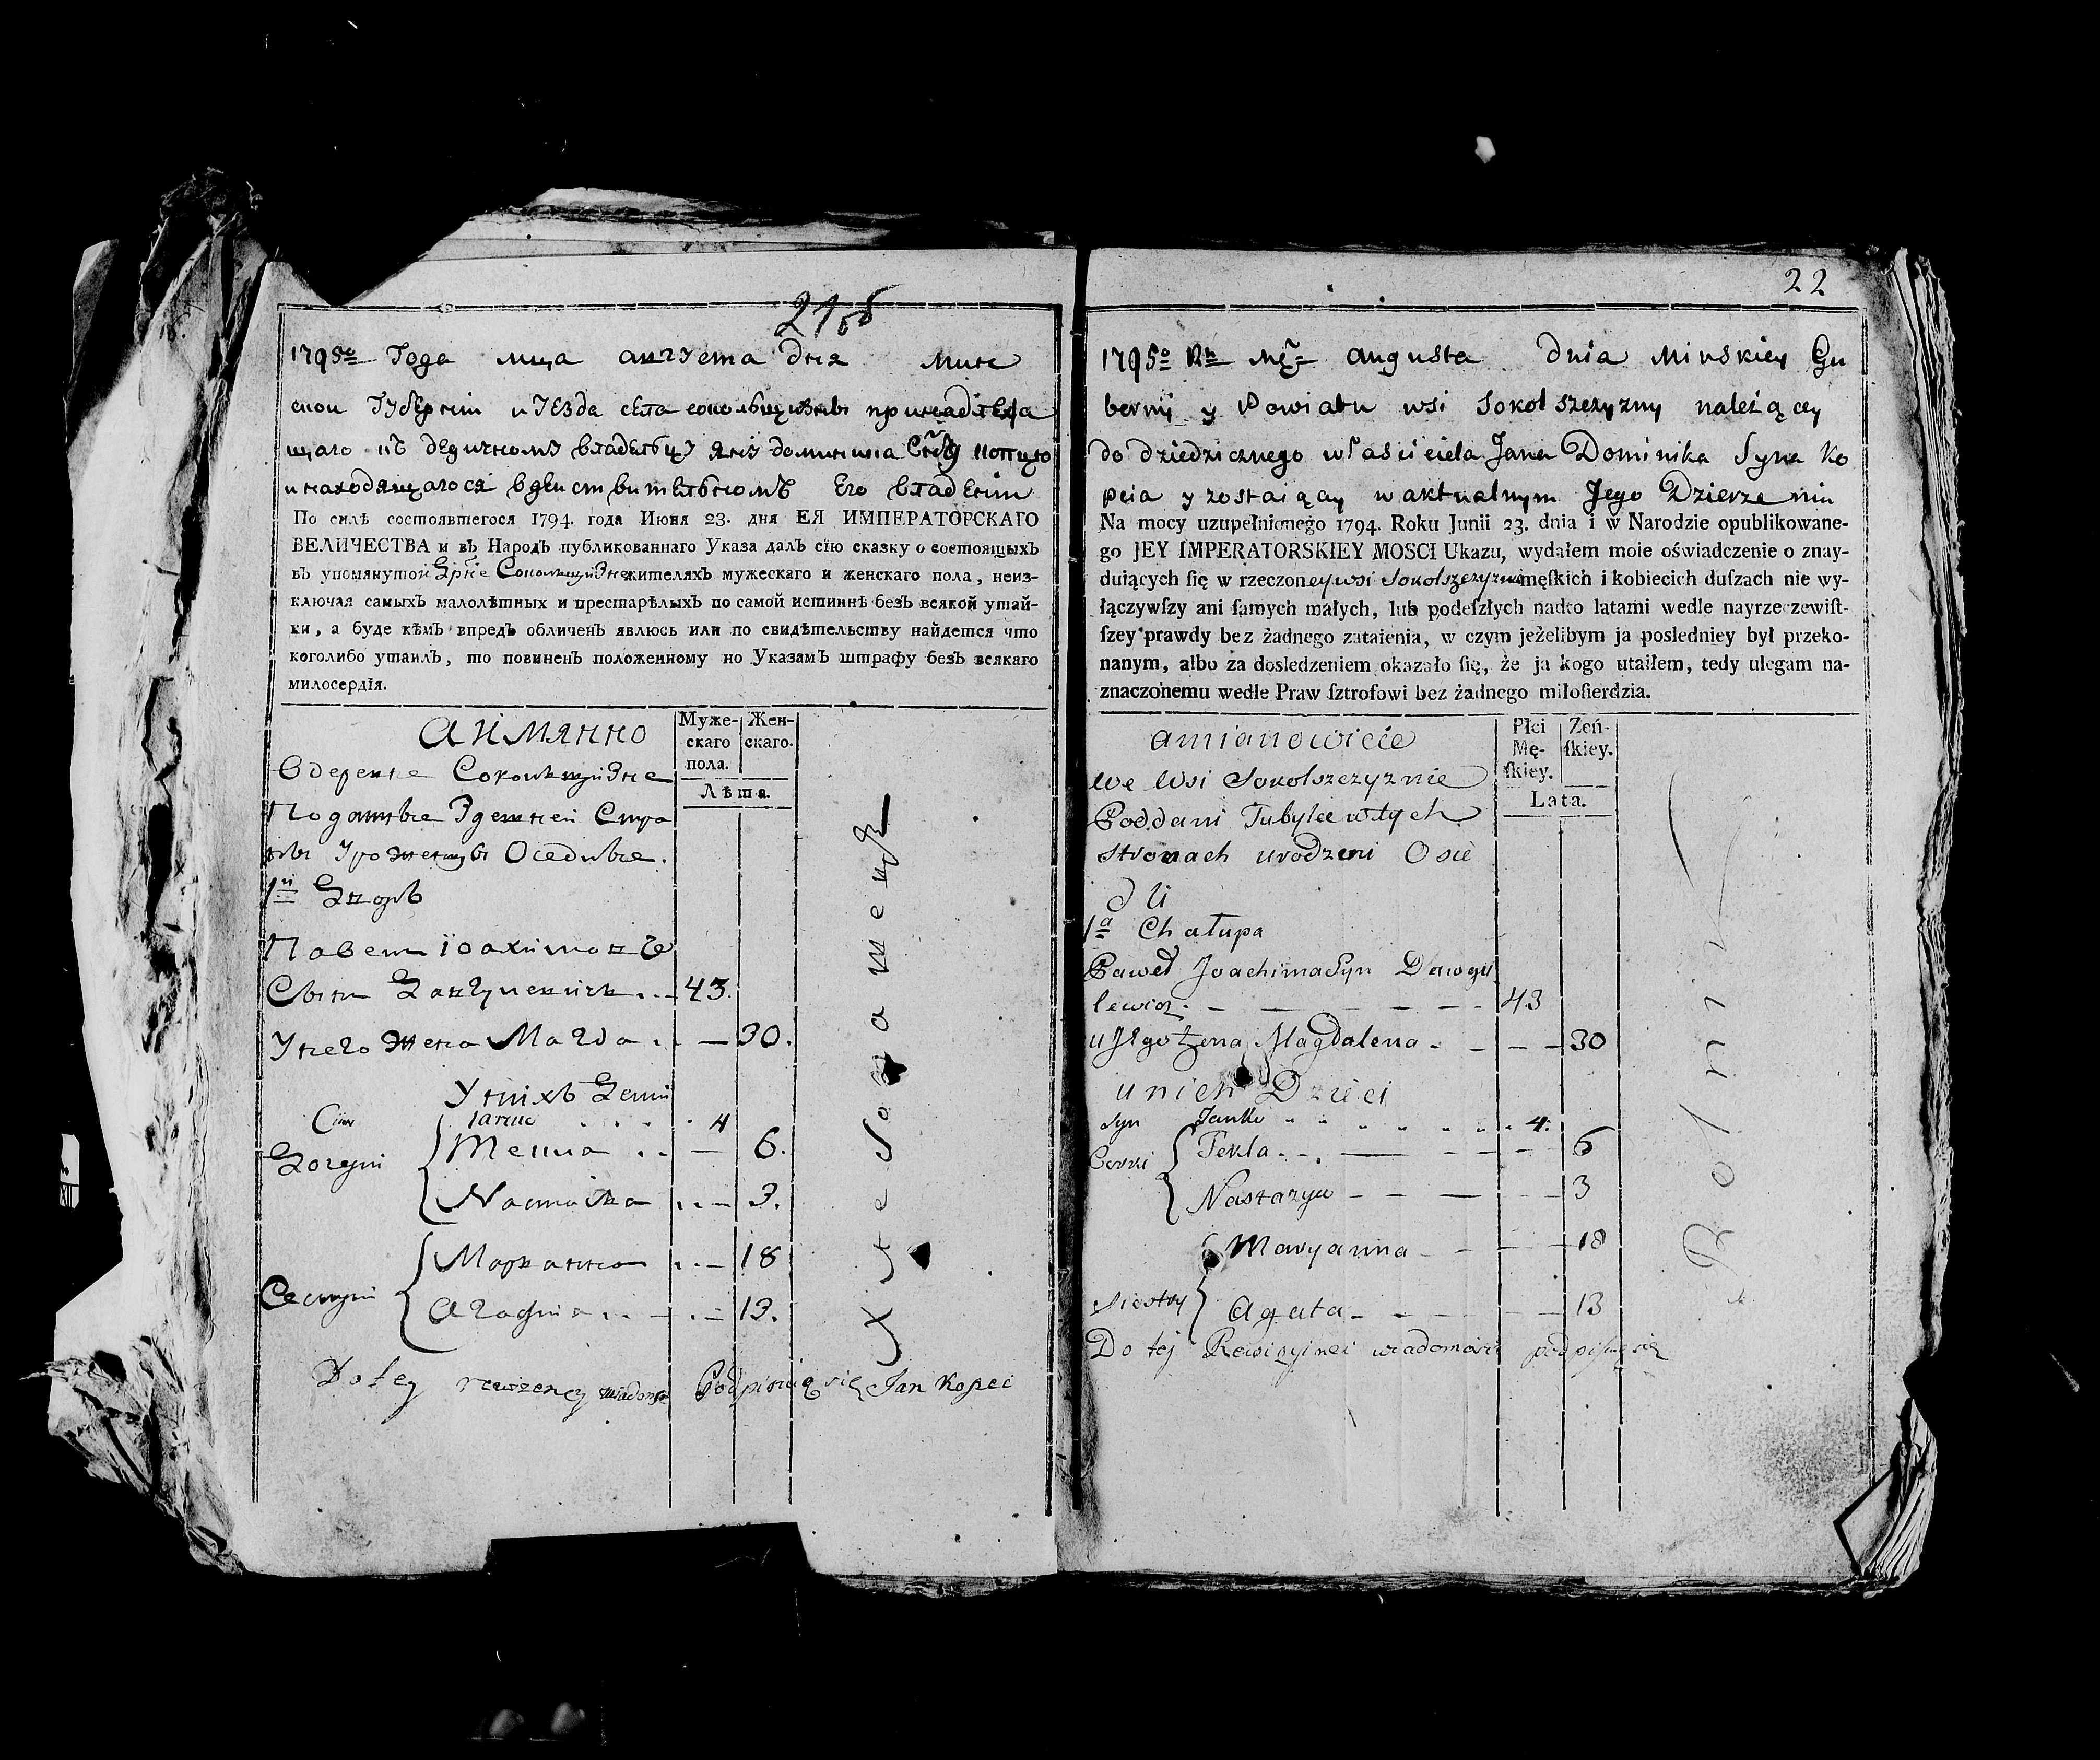 21 об
1795о Года мца августа дня Минс
скои Губернии и уезда села сокольщизны принадлежа
щаго къ дедичному владельцу Яну доминика Сну копцю
и находящагося вдеиствительномъ Его владении
По силѣ состоявшегося 1794. года Июня 23. дня ЕЯ ИМПЕРАТОРСКАГО
ВЕЛИЧЕСТВА и въ Народъ публикованнаго Указа далъ сїю сказку о состоящыхъ
въ упомянутой Дрне Сокольщизне жителяхъ мужескаго и женскаго пола, неиз-
ключая самыхъ малолѣтныхъ и престарѣлыхъ по самой истиннѣ безъ всякой утай-
ки, а буде кѣмъ впредъ обличенъ явлюсь или по свидѣтельству найдется что
коголибо утаилъ, то повиненъ положенному по Указамъ штрафу безъ всякаго
милосердїя.
аимянно
Муже-скаго пола.
Жен-скаго.
Лѣта.
Вдеревне Сокольщизне
Подданые Здешней Сторо
ны Уроженцы Оседлые.
1й Дворъ
Павел Іоахимовъ
Сынъ Давгулевичъ 43.
Унего жена Магда 30.
Унихъ Дети
Сын Янко 4
Дочери Текла 6.
Настазя 3.
Сестри Марианна 18
Агафия 13.
Хлебопашецъ
Do tey rewizeney wiadomo Podpisuię się Jan Kopeć
22
1795o Rku Mca augusta dnia Minskiey Gu
bernij y Powiatu wsi Sokolszczyzny należącey
do dziedzicznego właściciela Jana Dominika Syna Ko
pcia y zostaiącey w aktualnym Jego Dzierzeniu
Na mocy uzupełnionego 1794. Roku Junii 23. dnia i w Narodzie opublikowane-
go JEY IMPERATORSKIEY MOSCI Ukazu, wydałem moie oświadczenie o znay-
duiących ſię w rzeczoney wsi Sokolszczyznie męſkich i kobiecich duſzach nie wy-
łączywſzy ani ſamych małych, lub podeſzłych nadto latami wedle nayrzeczewiſt-
ſzey prawdy bez żadnego zataienia, w czym jeżelibym ja posledniey był przeko-
nanym, albo za dosledzeniem okazało ſię, że ja kogo utaiłem, tedy ulegam na-
znaczonemu wedle Praw ſztrofowi bez żadnego miłoſierdzia.
amianowicie
Płci Mę-ſkiey.
Zeń-ſkiey.
Lata.
We Wsi Sokolszczyznie
Poddani Tubylce wtych
stronach urodzeni Osie
dli
1a Chałupa
Paweł Joachima Syn Dawgu
lewicz 43
u Jego Żena Magdalena 30
u nich Dzieci
Syn Janko 4.
Corki Tekla 6
Nastazya 3
Maryanna 18
Siostry Agata 13
Rolnik
Do tej Rewizyinei wiadomosci podpisuię się